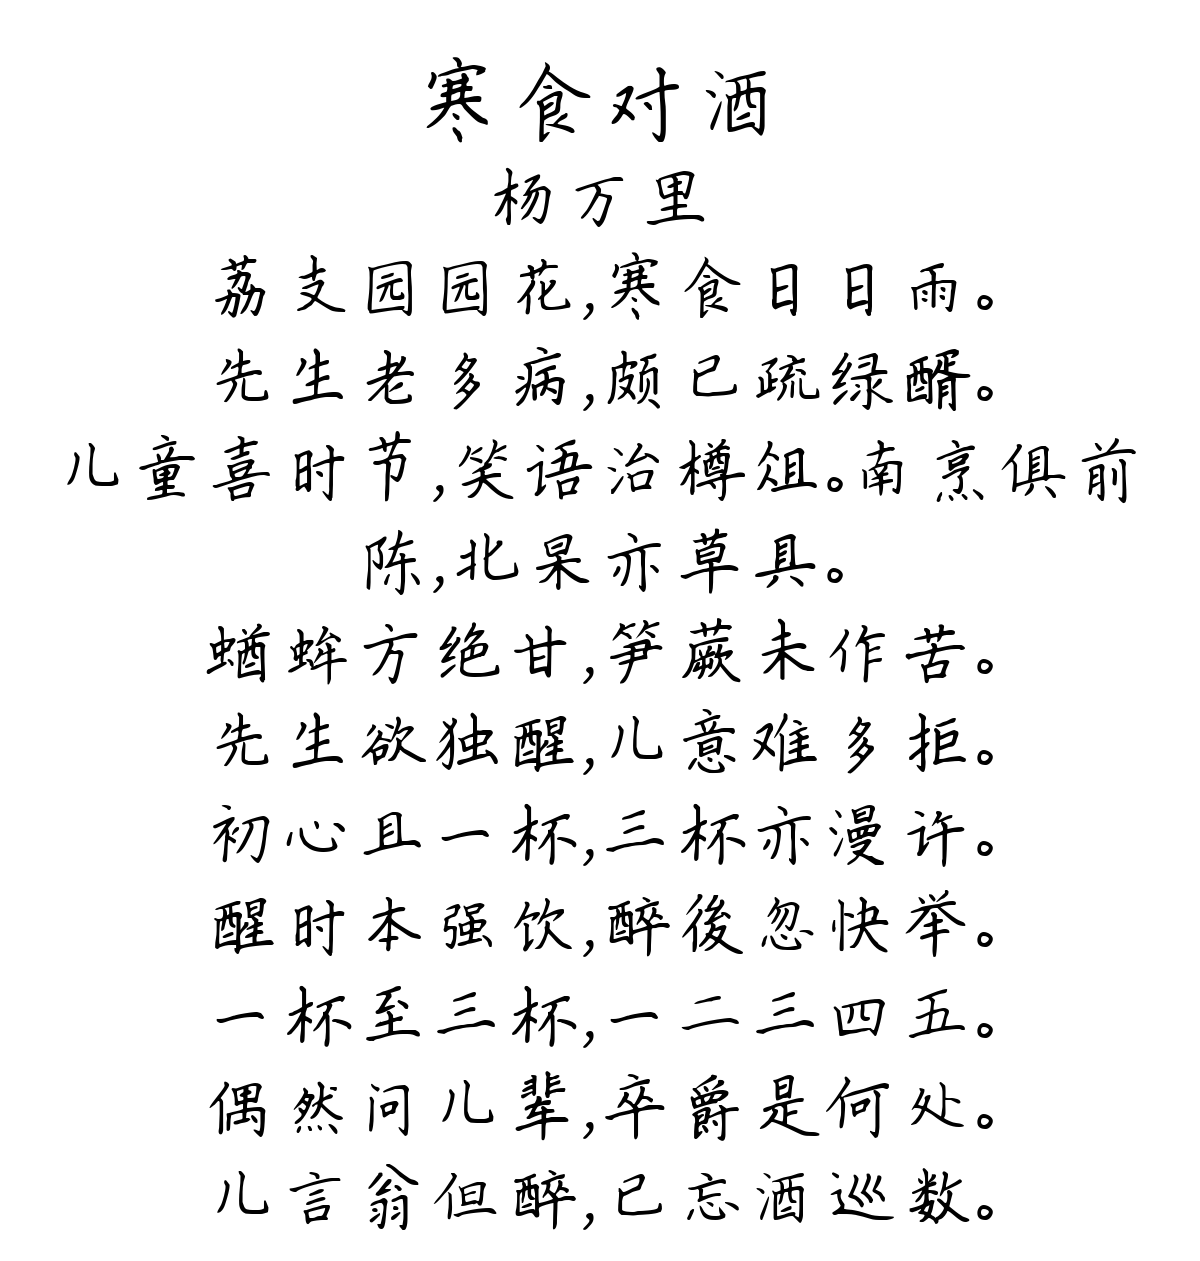 寒食对酒
杨万里
荔支园园花,寒食日日雨。
先生老多病,颇已疏绿醑。
儿童喜时节,笑语治樽俎。南烹俱前
陈,北杲亦草具。
蝤蛑方绝甘,笋蕨未作苦。
先生欲独醒,儿意难多拒。
初心且一杯,三杯亦漫许。
醒时本强饮,醉後忽快举。
一杯至三杯,一二三四五。
偶然问儿辈,卒爵是何处。
儿言翁但醉,已忘酒巡数。